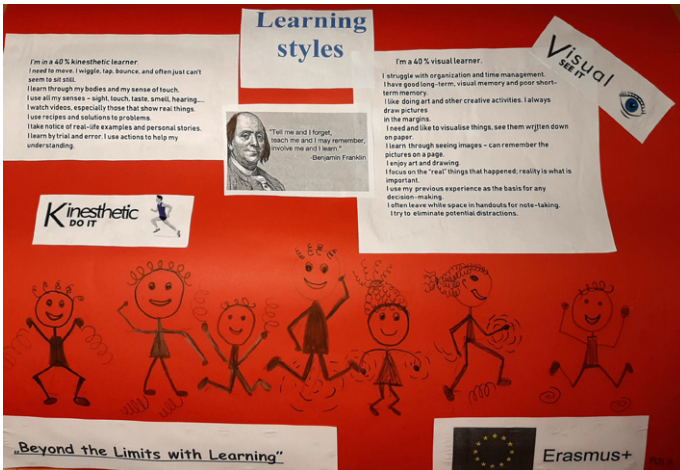 Learning
styles
I'm in a 40 % kinesthetic learner.
I need to move. I wiggle, tap, bounce, and often just can't
seem to sit still.
I learn through my bodies and my sense of touch.
I use all my senses - sight, touch, taste, smell, hearing....
I watch videos, especially those that show real things.
I use recipes and solutions to problems.
I take notice of real-life examples and personal stories.
I learn by trial and error. I use actions to help my
understanding.
"Tell me and I forget,
teach me and I may remember,
involve me and I learn."
-Benjamin Franklin
I'm a 40 % visual learner.
I struggle with organization and time management.
I have good long-term, visual memory and poor short-
term memory.
I like doing art and other creative activities. I always
draw pictures
in the margins.
I need and like to visualise things, see them written down
on paper.
I learn through seeing images – can remember the
pictures on a page.
I enjoy art and drawing.
I focus on the "real" things that happened; reality is what is
important.
I use my previous experience as the basis for any
decision-making.
I often leave white space in handouts for note-taking.
I try to eliminate potential distractions.
Visual
SEE IT
Kinesthetic
DO IT
„Beyond the Limits with Learning"
Erasmus+